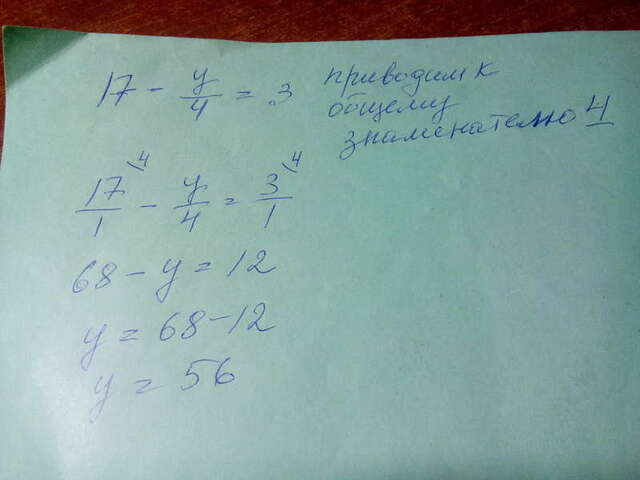 17 - y/4 = 3 приводим к
общему
знаменателю 4
17/1 \4 - y/4 = 3/1 \4
68 - y = 12
y = 68 - 12
y = 56